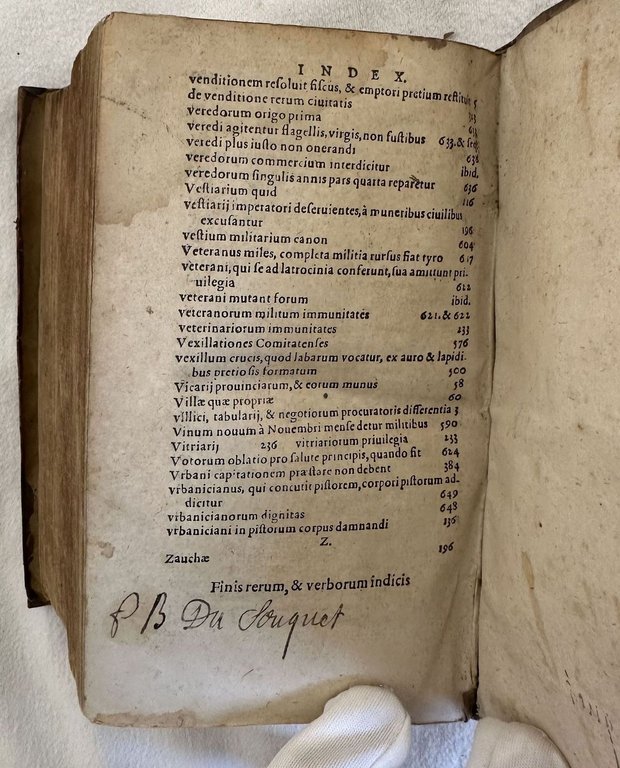 INDEX.
venditionem reſoluit fiſcus, & emptori pretium reſtituit 5
de venditione rerum ciuitatis
veredorum origo prima
veredi agitentur flagellis, virgis, non fuſtibus 633. & ſeq.
veredi plus iuſto non onerandi
veredorum commercium interdicitur ibid.
veredorum ſingulis annis pars quarta reparetur 636
Veſtiarium quid 116
veſtiarij imperatori deſeruientes, à muneribus ciuilibus
excuſantur 196
veſtium militarium canon 604
Veteranus miles, completa militia rurſus fiat tyro 617
veterani, qui ſe ad latrocinia conferunt, ſua amittunt pri-
uilegia 622
veterani mutant forum ibid.
veteranorum militum immunitates 621. & 622
veterinariorum immunitates 233
Vexillationes Comitatenſes 576
vexillum crucis, quod labarum vocatur, ex auro & lapidi-
bus pretioſis formatum 500
Vicarij prouinciarum, & eorum munus 58
Villæ quæ propriæ 60
villici, tabularij, & negotiorum procuratoris differentia 3
Vinum nouum à Nouembri menſe detur militibus 590
Vitriarij 236 vitriariorum priuilegia 233
Votorum oblatio pro ſalute principis, quando ſit 624
Vrbani capitationem præſtare non debent 384
vrbanicianus, qui concutit piſtorem, corpori piſtorum ad-
dicitur 649
vrbanicianorum dignitas 648
vrbaniciani in piſtorum corpus damnandi 136
Z.
Zauchæ 196
Finis rerum, & verborum indicis
P B Du Souquet